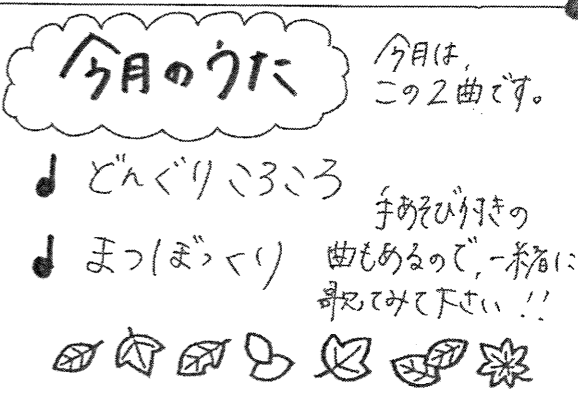 今月のうた
今月は、
この2曲です。
どんぐりころころ
まつぼっくり
手あそび付きの
曲もあるので、一緒に
歌ってみて下さい!!